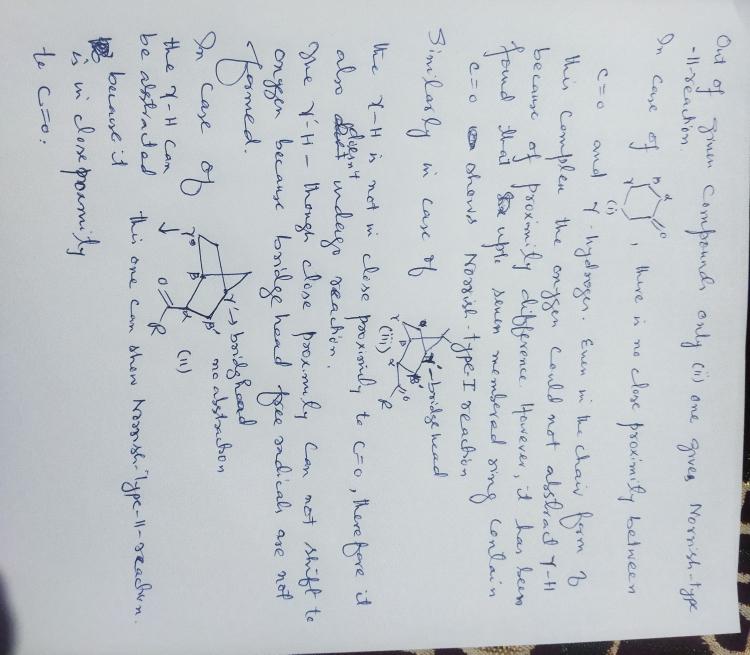 Out of given compounds only (ii) one gives Norrish-type
-II-reaction.
In case of α β γ O (i), there is no close proximity between
C=O and γ-hydrogen. Even in the chair form of
this complex the oxygen could not abstract γ-H
because of proximity difference. However, it has been
found that upto seven membered ring contain
C=O shows Norrish-type-I reaction
Similarly in case of γ β α β' γ'-bridgehead O R (iii)
the γ-H is not in close proximity to C=O, therefore it
also doesn't indago reaction.
The γ'-H - though close proximity can not shift to
oxygen because bridge head free radicals are not
formed.
In case of γ β α β' γ'→bridgehead no abstraction O R (ii)
the γ-H can
be abstracted this one can show Norrish-Type-II-reaction.
because it
is in close proximity
to C=O.